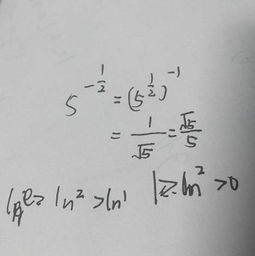 5^{-\frac{1}{2}} = (5^{\frac{1}{2}})^{-1}
= \frac{1}{\sqrt{5}} = \frac{\sqrt{5}}{5}
ln^2 > ln^1 1 > ln^2 > 0